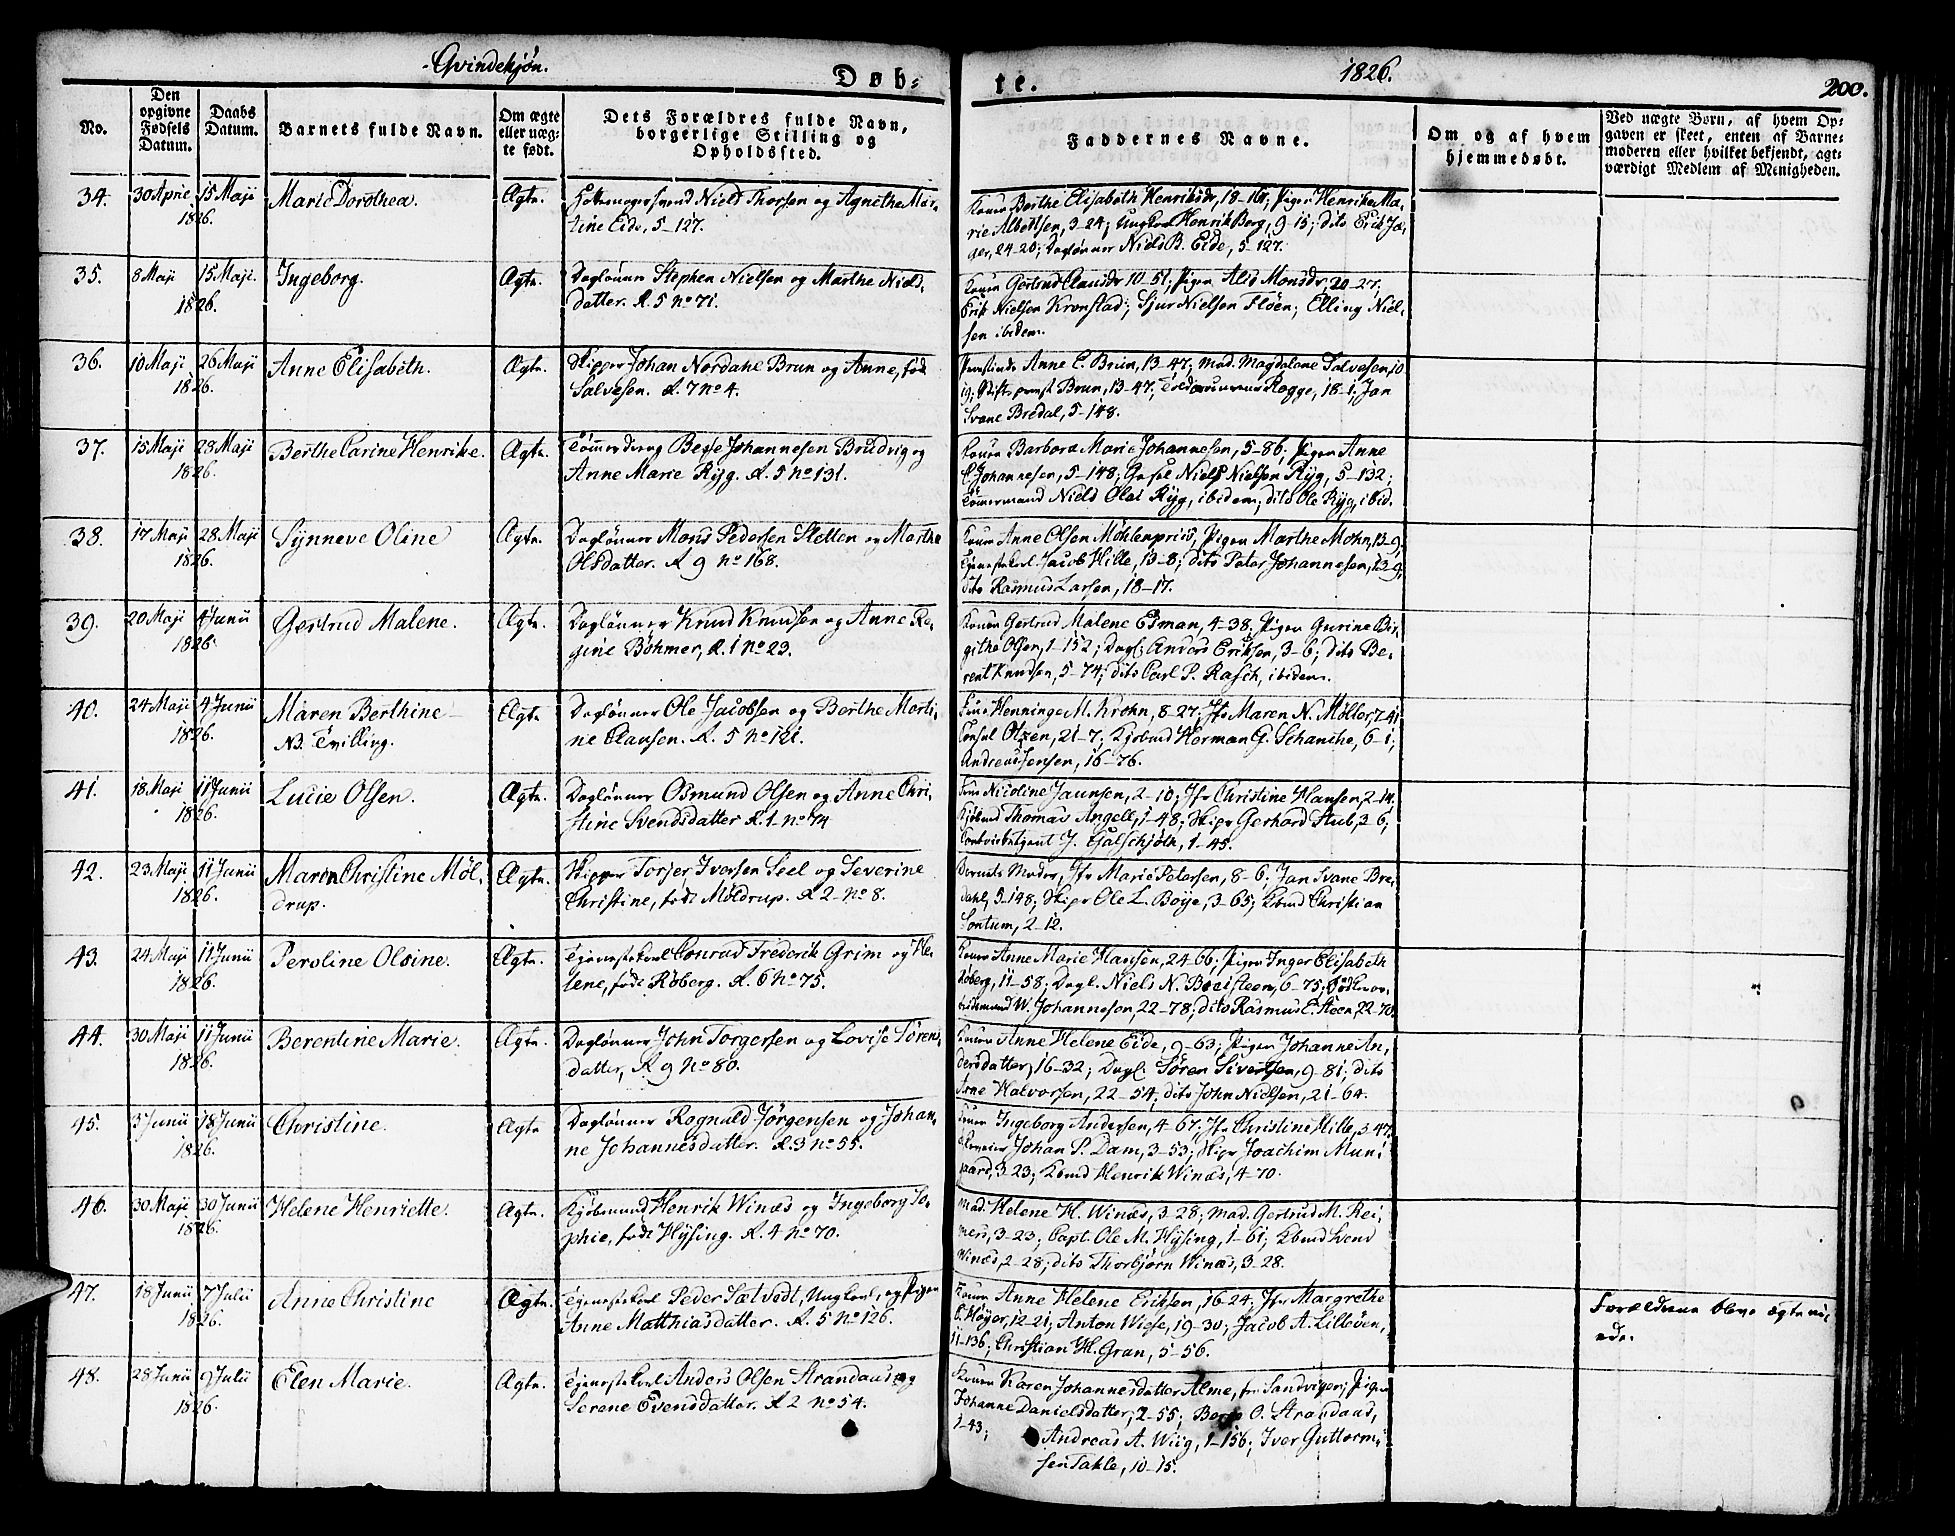 Qvindekjøn.
Døb-
te.
1826.
200.
No.
Den opgivne Fødsels Datum.
Daabs Datum.
Barnets fulde Navn.
Om ægte eller uæg- te født.
Dets Forældres fulde Navn, borgerlige Stilling og Opholdssted.
Faddernes Navne.
Om og af hvem hjemmedøbt.
Ved uægte Børn, af hvem Op-
gaven er skeet, enten af Barne-
moderen eller hvilket bekjendt, agt-
værdigt Medlem af Menigheden.
34. 30 Aprie 15 Maji Marie Dorothea. Ægte. Niels Thorsen og Agnethe Mar-
1826. tine Eide, 5-127.
Konen Berthe Elisabeth Henriksdr, 18-161; Pigen Henrike Ma-
rie Albethsen, 3-24; Ungkarl Henrik Berg, 9-15; dito Erik Jæ-
ger, 24-20; Daglønner Niels B. Eide, 5-127.
35. 8 Maji 15 Maji. Ingeborg. Ægte. Daglønner Stephen Nielsen og Marthe Niels-
1826. datter. R. 5 No 71.
Konen Gertrud Clausdr 10-51; Pigen Alis Monsdr, 20-27;
Erik Nielsen Kronstad; Sjur Nielsen Fløen; Elling Niel-
sen ibidem.
36. 10 Maji 26 Maji Anne Elisabeth. Ægte. Skipper Johan Nordahl Brun og Anne, fød
1826. Salvesen. R. 7 No 4.
Anne C. Brun, 13-47; Mad. Magdalene Salvesen, 10
19; Stiftsprovst Brun, 13-47; Rogge, 18-1; Jan
Svane Bredal, 5-148.
37. 15 Maji 28 Maji Berthe Carine Henrike. Ægte. Tømmerdreng Berje Johannesen Brudvig og
1826. Anne Marie Ryg. R. 5 No 131.
Konen Barbora Marie Johannesen, 5-86; Pigen Anne
C. Johannesen, 5-148; Niels Nielsen Ryg, 5-132;
Tømmermand Niels Olai Ryg, ibidem; dito Ole Ryg, ibid.
38. 17 Maji 28 Maji Synneve Oline Ægte. Daglønner Mons Pedersen Sletten og Marthe
1826. Olsdatter. R 9 No 168.
Konen Anne Olsen Møhlenpriis, Pigen Marthe Mohn, 13-9;
Tjenestekarl Jacob Hille, 13-8; dito Peter Johannesen, 13-9;
dito Rasmus Larsen, 18-17.
39. 20 Maji 4 Junii Gertrud Malene. Ægte. Daglønner Knud Knudsen og Anne Re-
1826. gine Böhmer, R. 1 No 23.
Konen Gertrud Malene Esman, 4-38, Pigen Gurine Bir-
githe Olsen, 1-152; Dagl: Anders Eriksen, 3-6; dito Be-
rent Knudsen, 5-74; dito Carl P. Rasch, ibidem.
40. 24 Maji 4 Junii Maren Berthine Ægte Daglønner Ole Jacobsen og Berthe Marti-
1826. NB. Tvilling. ne Clausen. R. 5 No 121.
Henninge M. Krohn, 8-27; Jfr Maren N. Møller, 7-41
Consul Olzen, 21-7; Kjøbmd Herman G. Schanche, 6-1;
Andreas Jensen, 16-76.
41. 18 Maji 11 Junii Lucie Olsen. Ægte. Daglønner Osmund Olsen og Anne Chri-
1826. stine Svendsdatter R. 1 No 74
Nicoline Jaunsen, 2-10; Jfr Christine Hansen, 2-14.
Kjøbmd Thomas Angell, 1-48; Skipr Gerhard Stub, 3-6;
J. Galschjøth, 1-45.
42. 23 Maji 11 Junii Maren Christine Møl- Ægte. Skipper Torjer Iversen Seel og Severine
1826. drup. Christine, født Møldrup. R 2 No 8.
Barnets Moder, Jfr Marie Petersen, 8-6; Jan Svane Bre-
dahl, 5-148; Skipr Ole L. Boye, 3-65; Kbmd Christian
Sontum, 2-12.
43. 24 Maji 11 Junii Peroline Olsine. Ægte. Tjenestekarl Conrad Frederik Grim og He-
1826. lene, født Røberg. R. 6 No 75.
Konen Anne Marie Hansen, 24-66; Pigen Inger Elisabeth
Røberg, 11-58; Dagl. Niels N. Breisteen, 6-75;
W. Johannesen, 22-78; dito Rasmus E. Steen, 22-70.
44. 30 Maji 11 Junii Berentine Marie. Ægte. Daglønner John Torgersen og Lovise Sörens-
1826. datter, R 9 No 80.
Konen Anne Helene Eide, 9-63; Pigen Johanne An-
dersdatter, 16-32; Dagl. Sören Sivertsen, 9-81; dito
Arne Halvorsen, 22-54; dito John Nielsen, 21-64.
45. 3 Junii 18 Junii Christine. Ægte Daglønner Rognald Jørgensen og Johan-
1826. ne Johannesdatter. R. 3 No 55.
Konen Ingeborg Andersen, 4-67; Jfr Christine Hille, 3-47
Johan P. Dam, 3-53; Skipr Joachim Mun-
gaard, 3-23; Kbmd Henrik Winæs, 4-70.
46. 30 Maji 30 Junii Helene Henriette. Ægte. Kjøbmand Henrik Winæs og Ingeborg So-
1826. phie, født Hysing. R. 4 No 70.
Mad. Helene H. Winæs, 3-28; Mad. Gertrud M. Rei-
mers, 3-23; Capt. Ole M. Hysing, 1-61; Kbmd Lend
Winæs, 2-28; dito Thorbjørn Winæs, 3-28.
47. 18 Junii 7 Julii Anne Christine Ægte. Tjenestekarl Peder Sætvedt, Ungkarl, og Pigen
1826. Anne Matthiasdatter. R. 5 No 126.
Konen Anne Helene Eriksen, 16-24; Jfr Margrethe
C. Høyer, 12-21; Anton Wiese, 19-30; Jacob A. Lilleöen,
11-136; Christian H. Gran, 5-56.
Forældrene bleve ægtevi-
ede.
48. 28 Junii 9 Julii Elen Marie. Ægte. Tjenestekarl Anders Olsen Strandaas og
1826. Serene Evensdatter. R 2 No 54.
Konen Karen Johannesdatter Alme, fra Sandvigen; Pigen
Johanne Danielsdatter, 2-55; O. Strandaas,
1-43; Andreas A. Wiig, 1-156; Iver Guttorm-
sen Takle, 10-15.